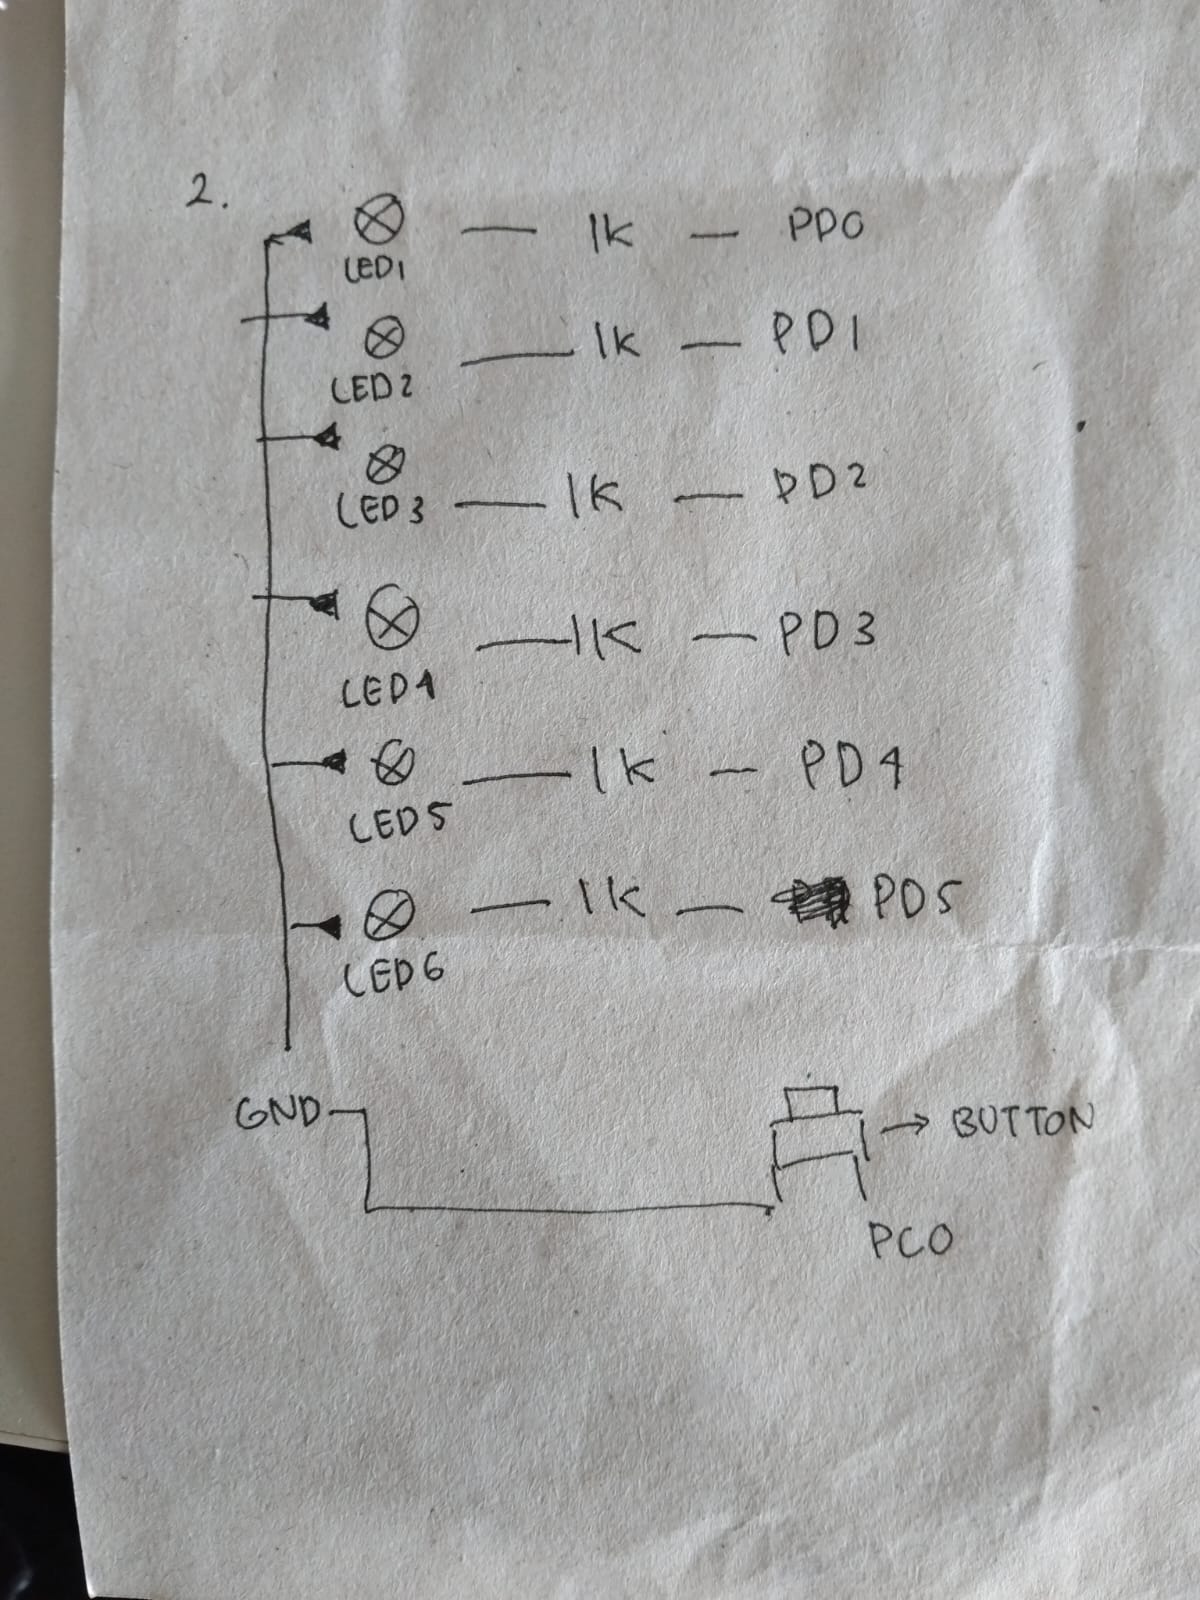 2.
1K — PD0
LED1
1K — PD1
LED2
1K — PD2
LED3
1K — PD3
LED4
1K — PD4
LED5
1K — PD5
LED6
GND
→ BUTTON
PC0